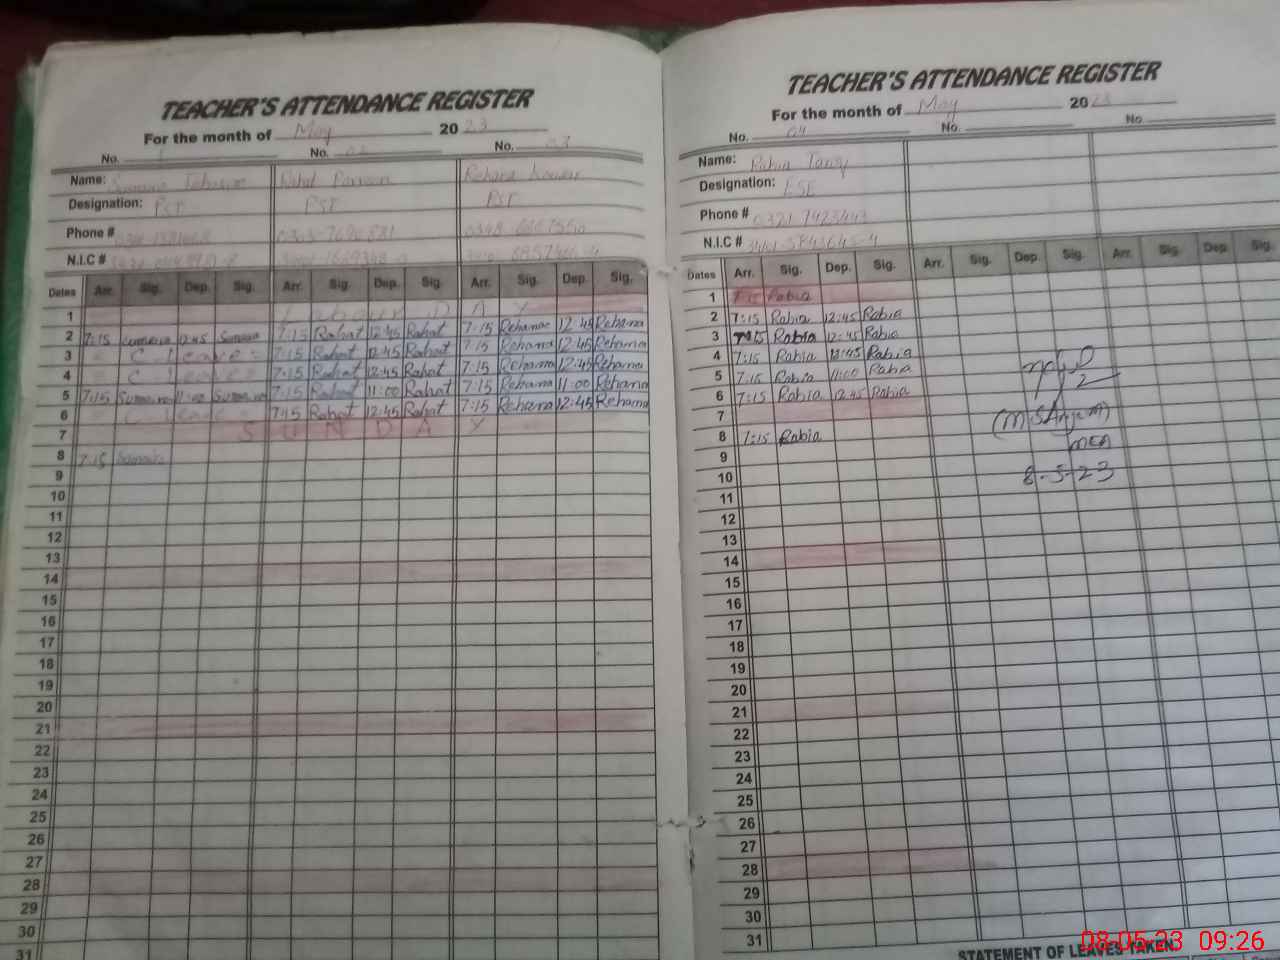 TEACHER'S ATTENDANCE REGISTER
For the month of May 2023
No. 1 No. 02 No. 03
Name: Rahat Parveen Rehana Kousar
Designation: PST PST PST
Phone #
N.I.C #
Dates Arr. Sig. Dep. Sig. Arr. Sig. Dep. Sig. Arr. Sig. Dep. Sig.
1 Labour DAY
2 7:15 Sumaira 12:45 Sumaira 7:15 Rahat 12:45 Rahat 7:15 Rehana 12:45 Rehana
3 C leave 7:15 Rahat 12:45 Rahat 7:15 Rehana 12:45 Rehana
4 C leave 7:15 Rahat 12:45 Rahat 7:15 Rehana 12:45 Rehana
5 7:15 Sumaira 11:00 Sumaira 7:15 Rahat 11:00 Rahat 7:15 Rehana 11:00 Rehana
6 C leave 7:15 Rahat 12:45 Rahat 7:15 Rehana 12:45 Rehana
7 SUNDAY
8 7:15 Sumaira
9
10
11
12
13
14
15
16
17
18
19
20
21
22
23
24
25
26
27
28
29
30
31
TEACHER'S ATTENDANCE REGISTER
For the month of May 2023
No. 04 No. No.
Name: Rabia
Designation: ESE
Phone #
N.I.C #
Dates Arr. Sig. Dep. Sig. Arr. Sig. Dep. Sig. Arr. Sig. Dep. Sig.
1 Rabia
2 7:15 Rabia 12:45 Rabia
3 7:15 Rabia 12:45 Rabia
4 7:15 Rabia 12:45 Rabia
5 7:15 Rabia 11:00 Rabia
6 7:15 Rabia 12:45 Rabia
7
8 7:15 Rabia
9
10
11
12
13
14
15
16
17
18
19
20
21
22
23
24
25
26
27
28
29
30
31
(M.S Anjum)
MEA
8-5-23
STATEMENT OF LEAVES TAKEN
08-05-23 09:26